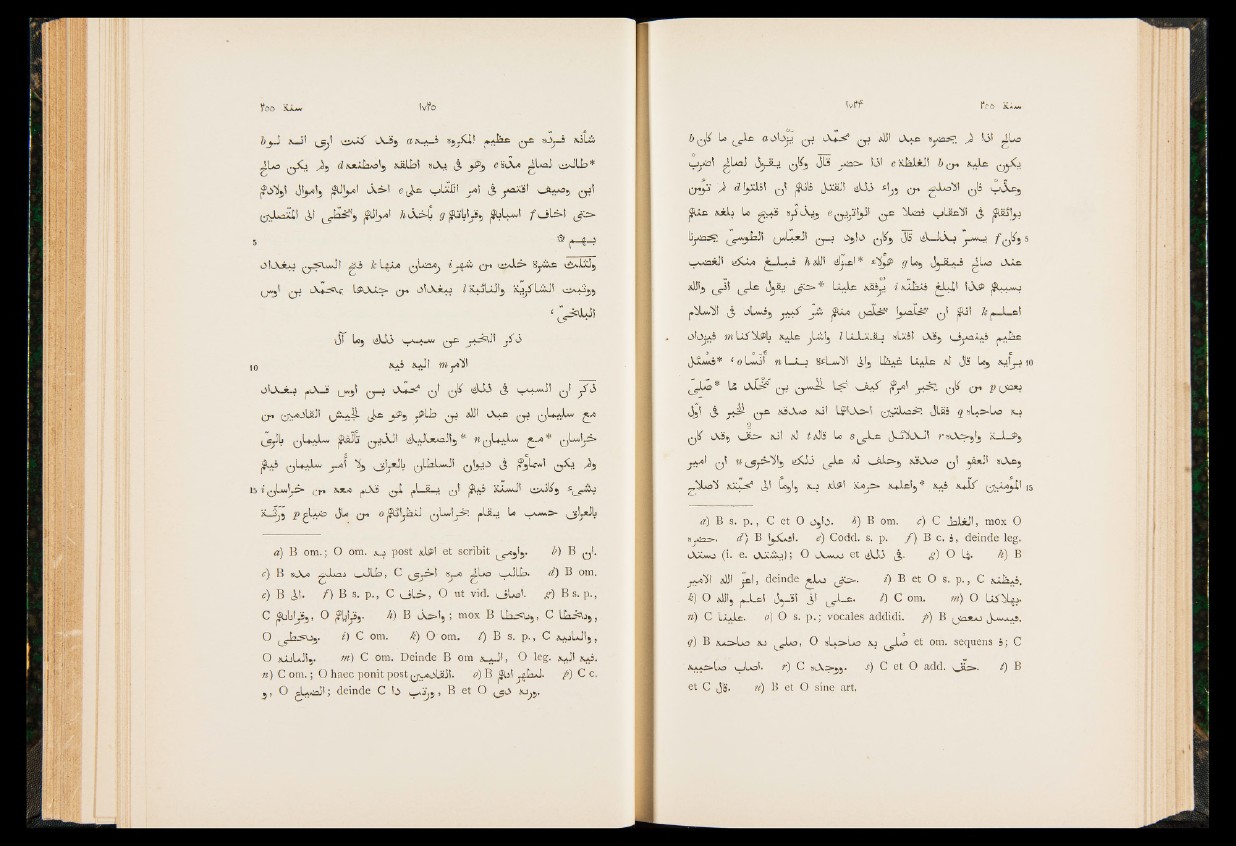 سنة ٢٥٥ ١٧٣٤
صالح اذا لم يحضره عبد الله بن محمّد بن يزداد a على ما كان b
يكون عليه من b الغلظة c اذا حضر قال وكان يقول لصالح اضرب
وعذّب فان الاصلح من وراء ذلك القتل فانهم ان افلتوا d لم تؤمن
بوائقهم فى الاعقاب فضلا عن الواترين e ويذكره قبيح ما بلغه عنهم
5 وكان f يسرّ بذلك قال وكان داود بن العبّاس الطوسى يحضرنا
عند صالح فيقول وما g هؤلاء *اعزّك الله h فبلغ منك الغضب
بسببهم هذا المبلغ فظننّا i يرققه علينا *حتى يقول على انى والله
اعلم k انهم ان تخلّصوا تخلّص منهم شرّ كبير وفساد فى الاسلام
عظيم فينصرف وقد افتاه بقتلنا l واشار عليه باهلاكنا m فيزداد
10 برأيه وما قال له علينا غيظا والى الاساءة بنا n أنسًا o، *فسئل
بعض p من كان يخبر امرهم كيف نجا الحسن بن مخلّد ممّا *صلى
به صاحباه q فقال بخصلتين احداهما انه صدقه عن الخبر فى أول
وهلة واوجده r الدلائل على s ما قاله t له انه حقّ وقد كان
وعده العفو ان صدقه وحلف له على ذلك والاخرى u ان امير
15 المؤمنين كلّمه فيه *واعلمه حرمة اهله به واومأ الى محبّته لاصلاح
a) B s. p., C et O داود. b) B om. c) C الغلظ, mox O
حضره. d) B افتكوا. e) Codd. s. p. f) B c. ف, deinde leg.
(i. e. ); O et ذلك فى. g) O فما. h) B
اعز الله الامير, deinde حتى بلغ. i) B et O s. p., C
k) O والله على انى اقول اعلم. l) C om. m) O
n) C علينا. o) O s. p.; vocales addidi. p) B
q) B صلى به صاحبه, O صلى به صاحباه et om. sequens ف; C
r) C ووجده. s) C et O add. حق. t) B
et C قال. u) B et O sine art.
سنة ٢٥٥ ١٧٣٥
شأنه فردّه عن عظيم المكروه فيه a وقد كنت ارى انه لو b
*طالت لصالح مدّة c وهو فى يده اطلقه واصطنعه d ولم يكن صالح
ابن وصيف اقتصر فى امر الكتّاب على e اخذ اموالهم واموال اولادهم
حتى اخاف f اسبابهم وقراباتهم g باخذ h اموالهم وتخطّى الى المتّصلين
5 بهم ۞
ولثلث عشرة خلت من شهر i رمضان منها k فتح السجن ببغداد
ووثبت الشاكريّة والنائبة l ببغداد من جندها بمحمّد بن اوس
البلخىّ ،
ذكر الخبر عن سبب ذلك وما آل
10 الامر m اليه فيه
ذُكر ان السبب فى ذلك كان ان محمّد بن اوس قدم بغداد
مع سليمان بن عبد الله بن طاهر وهو على الجيش القادمين من
خراسان *مع سليمان n *والصعاليك الذين تألّفهم سليمان بالرىّ
ولم يكن اسماؤهم فى ديوان السلطان بالعراق ولا أُمر سليمان فيهم
15 بشىء، وكانت السنّة فيهم ان يقام لمن قدم معه من خراسان i
بالعراق حسب ما يقام بخراسان لنظرائهم o من مال ضياع p ورثة
a) B om.; O om. به post اهله et scribit واومى. b) B ان.
c) B طالب لصالح مده, C طالب صالح مره اخرى. d) B om.
e) B الى. f) B s. p., C خاف, O ut vid. اضاف. g) B s. p.,
C, O وقرابهم. h) B واخذ; mox B, C,
O. i) C om. k) O om. l) B s. p., C,
O. m) C om. Deinde B om اليه, O leg. فيه اليه.
n) C om.; O haec ponit post القادمين. o) B p) C c.
و, O الضياع; deinde C, B et O